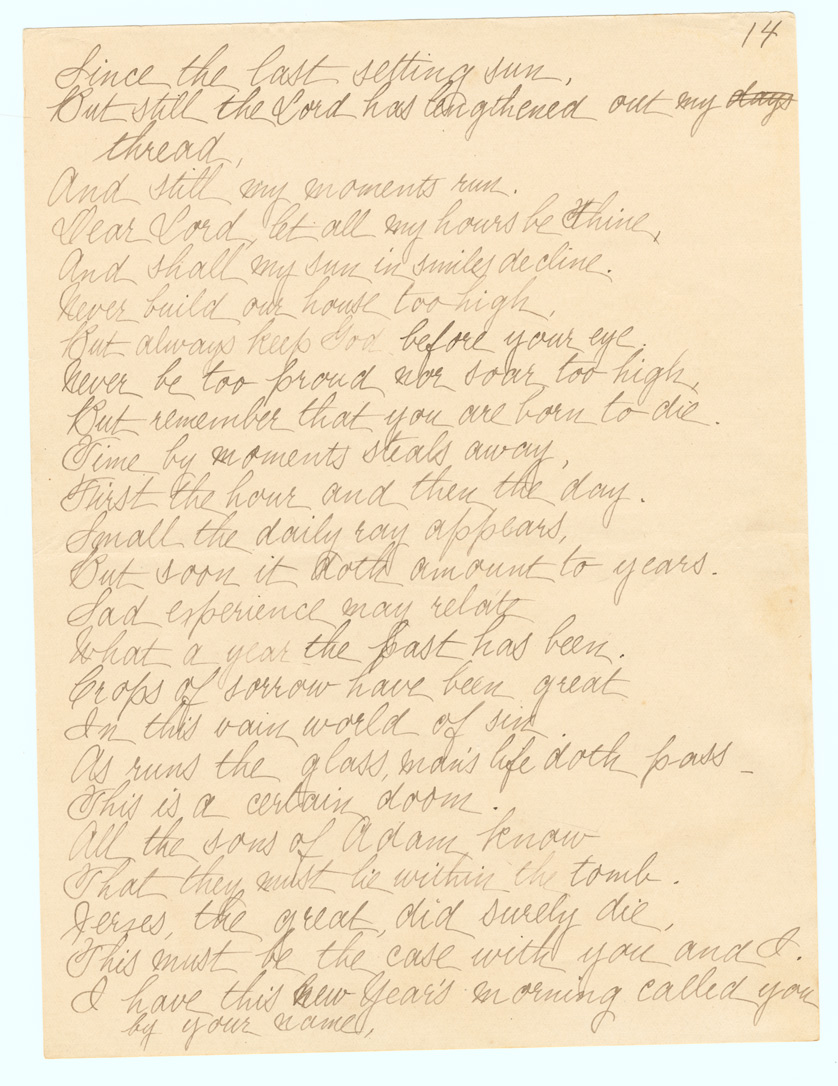 14
Since the last setting sun,
But still the Lord has lengthened out my days
thread,
And still my moments run.
Dear Lord, let all my hours be thine,
And shall my sun in smiles decline.
Never build our house too high,
But always keep God before your eye.
Never be too proud nor soar too high,
But remember that you are born to die.
Time by moments steals away,
First the hour and then the day.
Small the daily ray appears,
But soon it doth amount to years.
Sad experience may relate
What a year the past has been.
Crops of sorrow have been great
In this vain world of sin
As runs the glass, man's life doth pass –
This is a certain doom.
All the sons of Adam know
That they must lie within the tomb.
Xerxes, the great, did surely die,
This must be the case with you and I.
I have this New Year's morning called you
by your name,